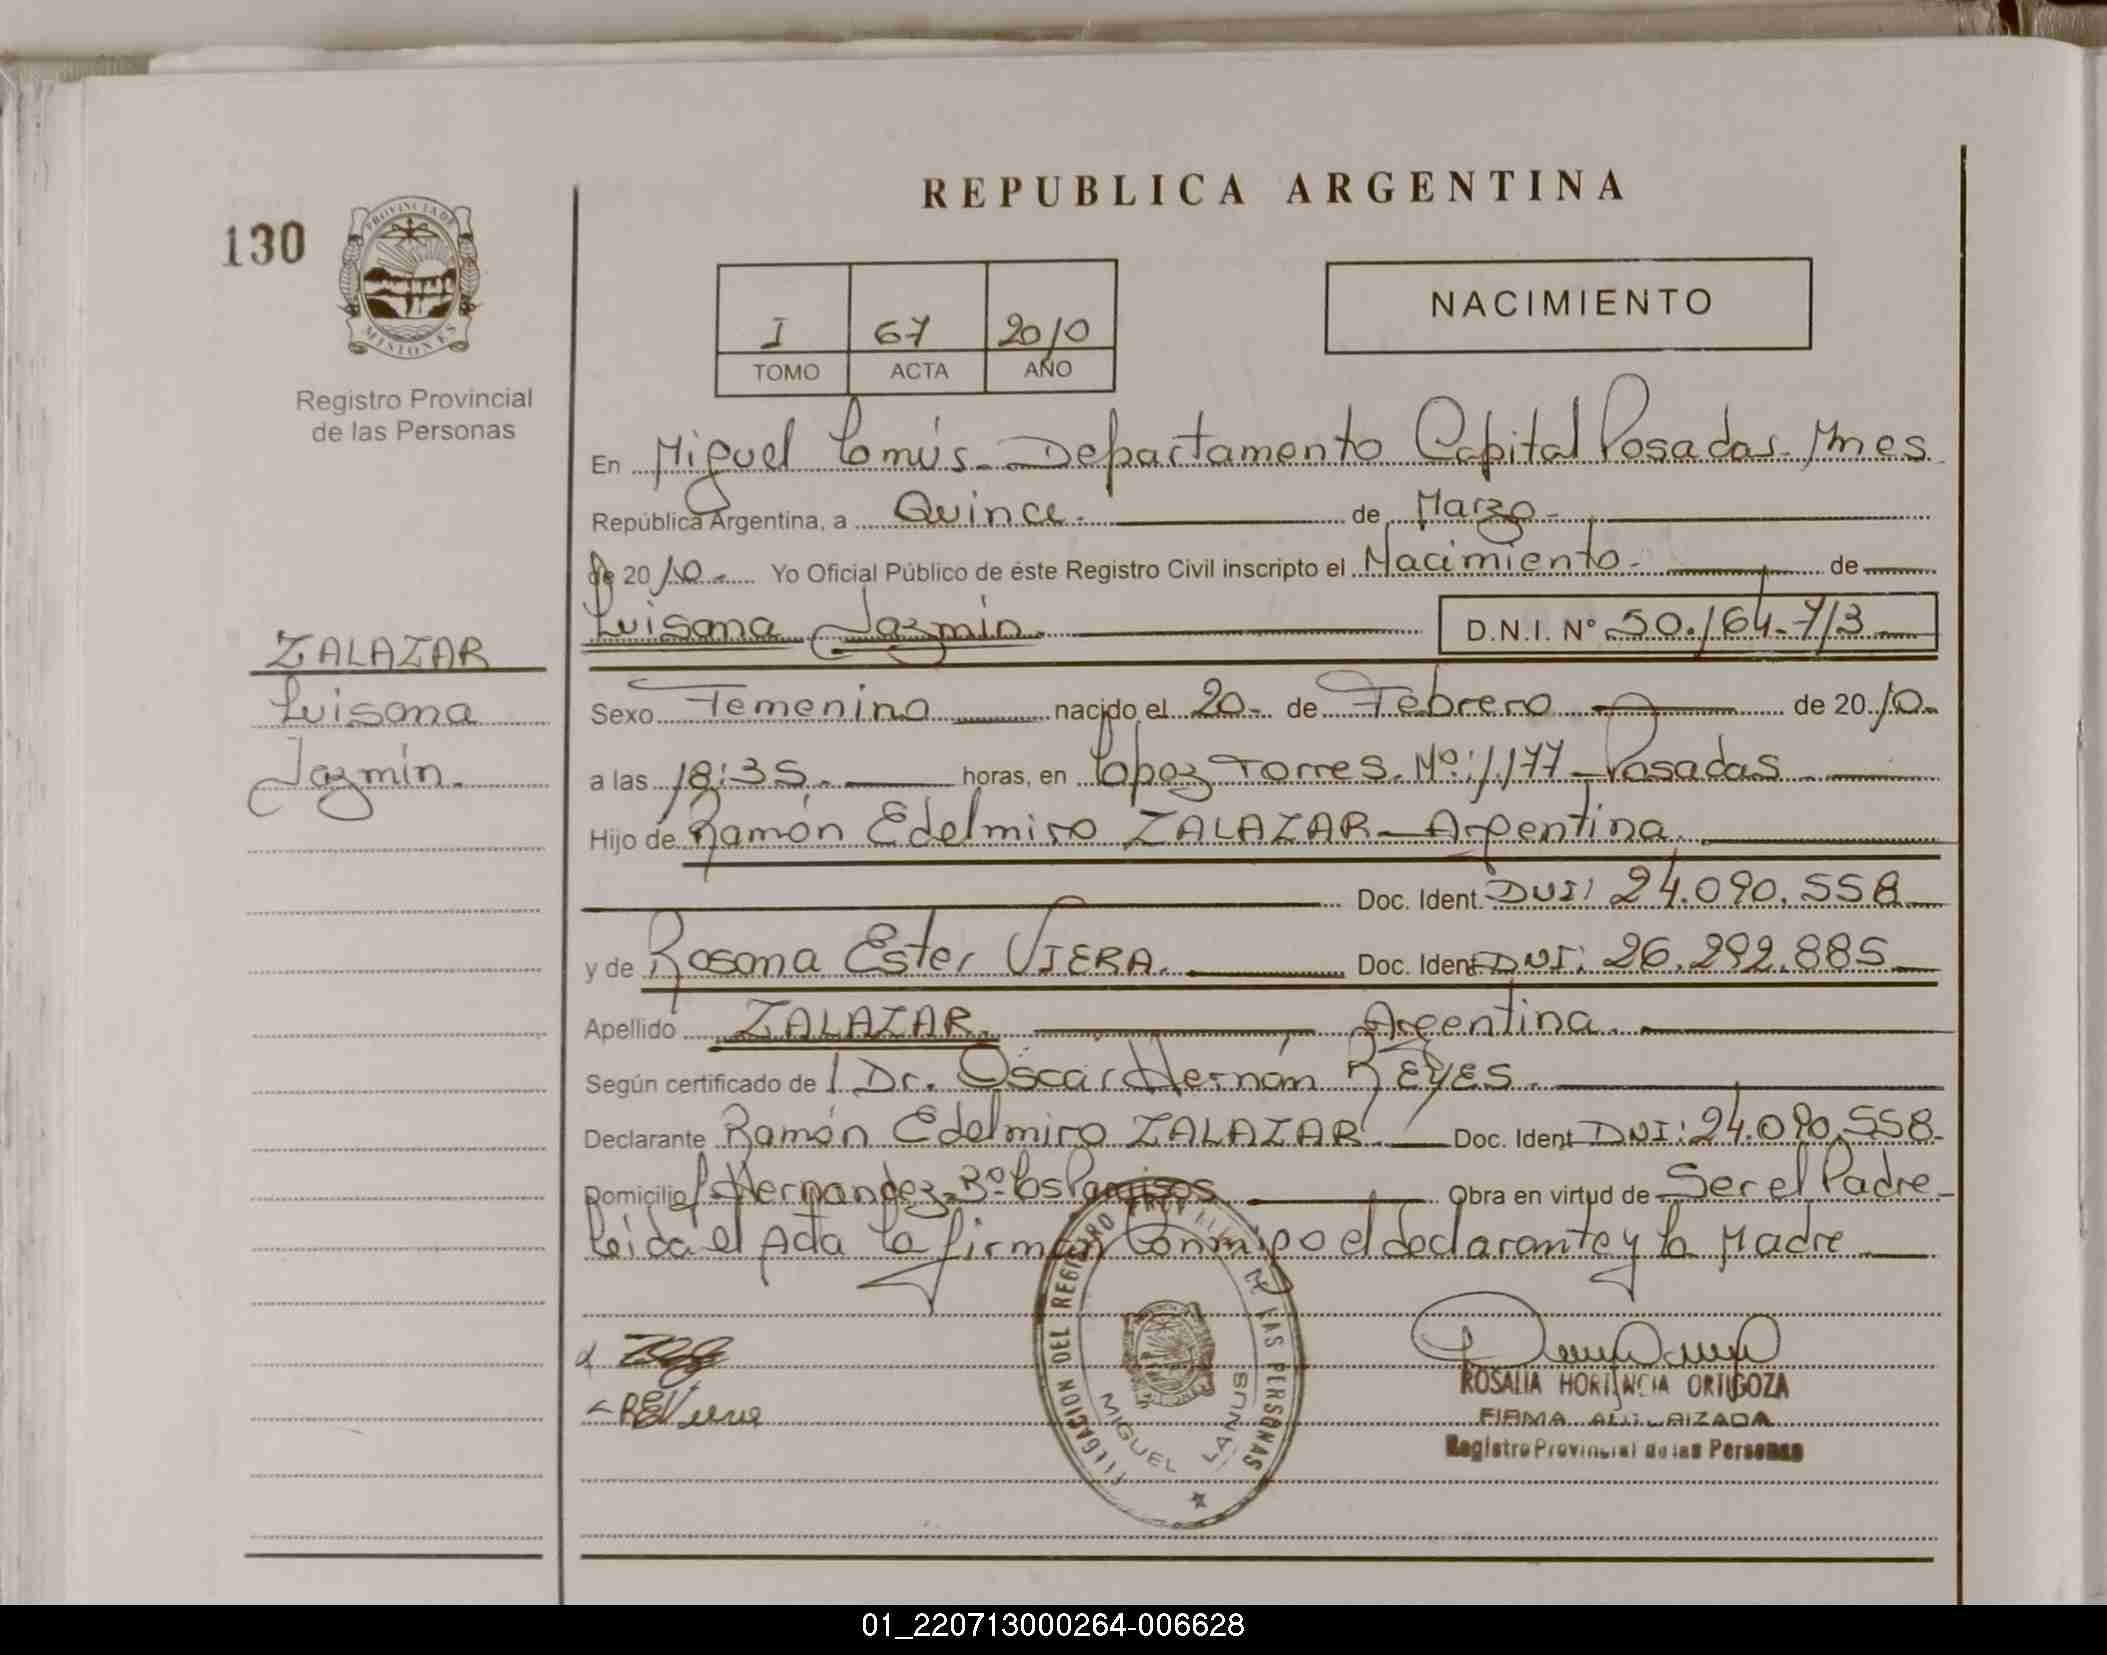 REPUBLICA ARGENTINA
130
PROVINCIA DE
MISIONES
Registro Provincial
de las Personas
I 67 2010
TOMO ACTA AÑO
NACIMIENTO
En Miguel Lanús - Departamento Capital Posadas - Mnes
República Argentina, a Quince.- de Marzo.-
de 2010.- Yo Oficial Público de éste Registro Civil inscripto el Nacimiento.- de
Luisana Jazmín. D.N.I. N° 50.164.713
ZALAZAR
Luisana
Jazmín.
Sexo Femenino nacido el 20- de Febrero de 2010.
a las 18:35.- horas, en López Torres. Nº: 1.177 - Posadas
Hijo de Ramón Edelmiro ZALAZAR - Argentina.
Doc. Ident. DNI: 24.090.558
y de Rosana Ester VIERA. Doc. Ident. DNI: 26.292.885
Apellido ZALAZAR. Argentina.
Según certificado de Dr. Oscar Hernán REYES.
Declarante Ramón Edelmiro ZALAZAR. Doc. Ident. DNI: 24.090.558.
Domicilio Hernandez Bº Los Paraísos Obra en virtud de Ser el Padre
Leída el Acta la firman Conmigo el declarante y la Madre
DELEGACION DEL REGISTRO PROVINCIAL DE LAS PERSONAS
MIGUEL LANUS
ROSALIA HORTENCIA ORTIGOZA
FIRMA AUTORIZADA
Registro Provincial de las Personas
01_220713000264-006628